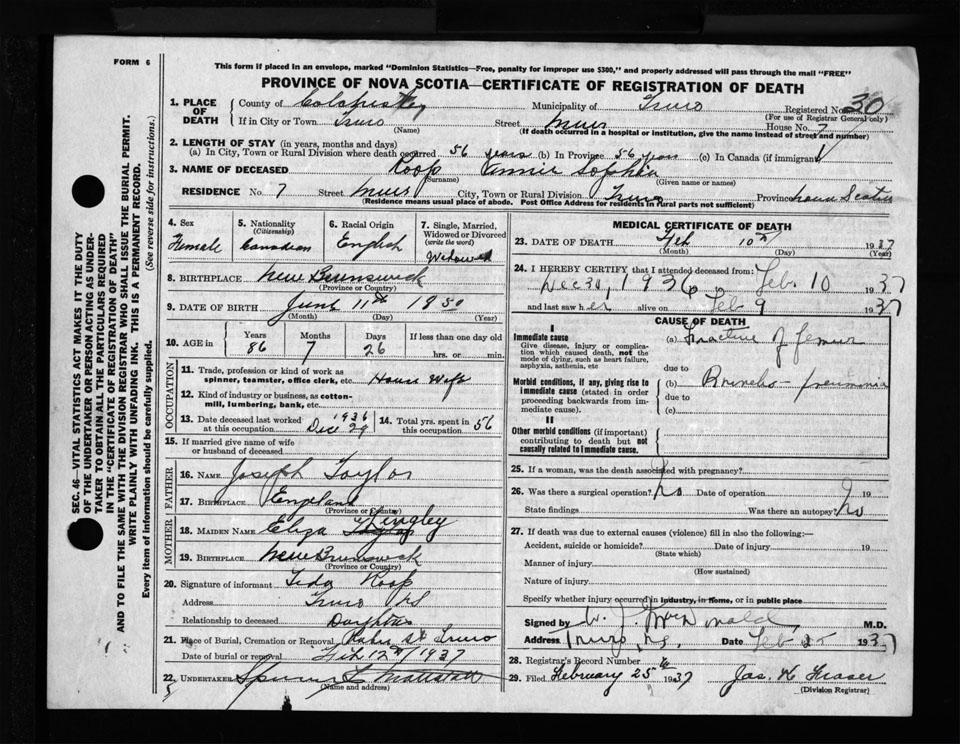 FORM 6
This form if placed in an envelope, marked "Dominion Statistics—Free, penalty for improper use $300," and properly addressed will pass through the mail "FREE"
PROVINCE OF NOVA SCOTIA—CERTIFICATE OF REGISTRATION OF DEATH
1. PLACE OF DEATH County of Municipality of Truro Registered No. 30
(For use of Registrar General only)
If in City or Town Truro Street Muir House No. 7
(Name) (If death occurred in a hospital or institution, give the name instead of street and number)
2. LENGTH OF STAY (in years, months and days)
(a) In City, Town or Rural Division where death occurred 56 years (b) In Province 56 years (c) In Canada (if immigrant)
3. NAME OF DECEASED Roop Sophia
(Surname) (Given name or names)
RESIDENCE No. 7 Street Muir City, Town or Rural Division Truro Province Nova Scotia
(Residence means usual place of abode. Post Office Address for residents in rural parts not sufficient)
4. Sex Female
5. Nationality (Citizenship) Canadian
6. Racial Origin English
7. Single, Married, Widowed or Divorced (write the word) Widowed
8. BIRTHPLACE New Brunswick
(Province or Country)
9. DATE OF BIRTH June 11th 1850
(Month) (Day) (Year)
10. AGE in Years 86 Months 7 Days 26 If less than one day old hrs. or min.
OCCUPATION
11. Trade, profession or kind of work as spinner, teamster, office clerk, etc. House Wife
12. Kind of industry or business, as cotton-mill, lumbering, bank, etc.
13. Date deceased last worked at this occupation 1936 Dec 29 14. Total yrs. spent in this occupation 56
15. If married give name of wife or husband of deceased
FATHER
16. NAME Joseph Taylor
17. BIRTHPLACE England
(Province or Country)
MOTHER
18. MAIDEN NAME Eliza
19. BIRTHPLACE New Brunswick
(Province or Country)
20. Signature of informant Roop
Address Truro NS
Relationship to deceased Daughter
21. Place of Burial, Cremation or Removal St Truro
Date of burial or removal Feb 12th/1937
22. UNDERTAKER
(Name and address)
MEDICAL CERTIFICATE OF DEATH
23. DATE OF DEATH Feb 10th 1937
(Month) (Day) (Year)
24. I HEREBY CERTIFY that I attended deceased from:
Dec 30, 1936 Feb. 10 1937
and last saw her alive on Feb 9 1937
CAUSE OF DEATH
I
Immediate cause
Give disease, injury or complication which caused death, not the mode of dying, such as heart failure, asphyxia, asthenia, etc
(a) Fracture of femur
due to
Morbid conditions, if any, giving rise to immediate cause (stated in order proceeding backwards from immediate cause).
(b) Broncho-pneumonia
due to
(c)
II
Other morbid conditions (if important) contributing to death but not causally related to immediate cause.
25. If a woman, was the death associated with pregnancy?
26. Was there a surgical operation? No Date of operation 19
State findings Was there an autopsy? No
27. If death was due to external causes (violence) fill in also the following:—
Accident, suicide or homicide? Date of injury 19
(State which)
Manner of injury
(How sustained)
Nature of injury
Specify whether injury occurred in industry, in home, or in public place
Signed by W. J. McDonald M.D.
Address Truro, N.S. Date Feb 25 1937
28. Registrar's Record Number
29. Filed February 25th 1937 Jas. H. Fraser
(Division Registrar)
SEC. 46—VITAL STATISTICS ACT MAKES IT THE DUTY OF THE UNDERTAKER OR PERSON ACTING AS UNDERTAKER TO OBTAIN ALL THE PARTICULARS REQUIRED IN THE "CERTIFICATE OF REGISTRATION OF DEATH" AND TO FILE THE SAME WITH THE DIVISION REGISTRAR WHO SHALL ISSUE THE BURIAL PERMIT.
WRITE PLAINLY WITH UNFADING INK. THIS IS A PERMANENT RECORD.
Every item of information should be carefully supplied. (See reverse side for instructions.)